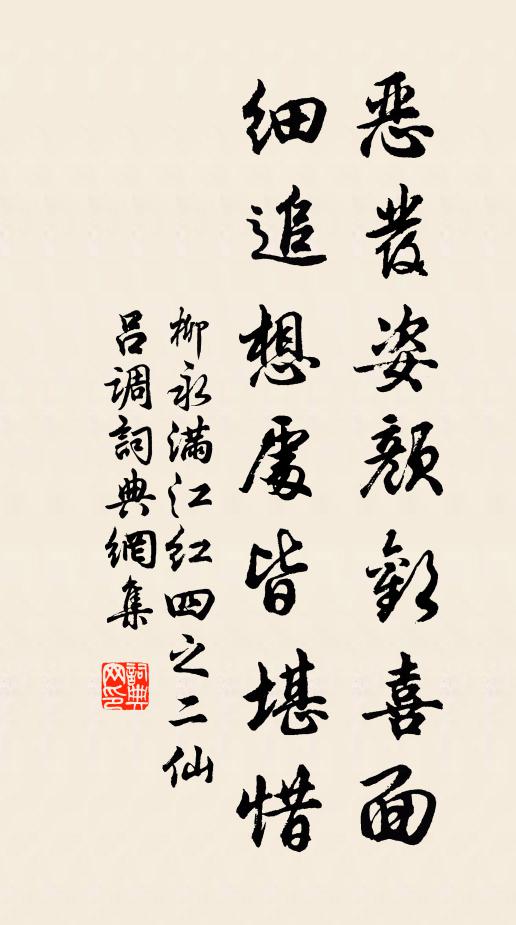 恶发姿颜歡喜面
细追想處皆堪惜
柳永满江红四之二仙
吕调詞典網集
詞典网印